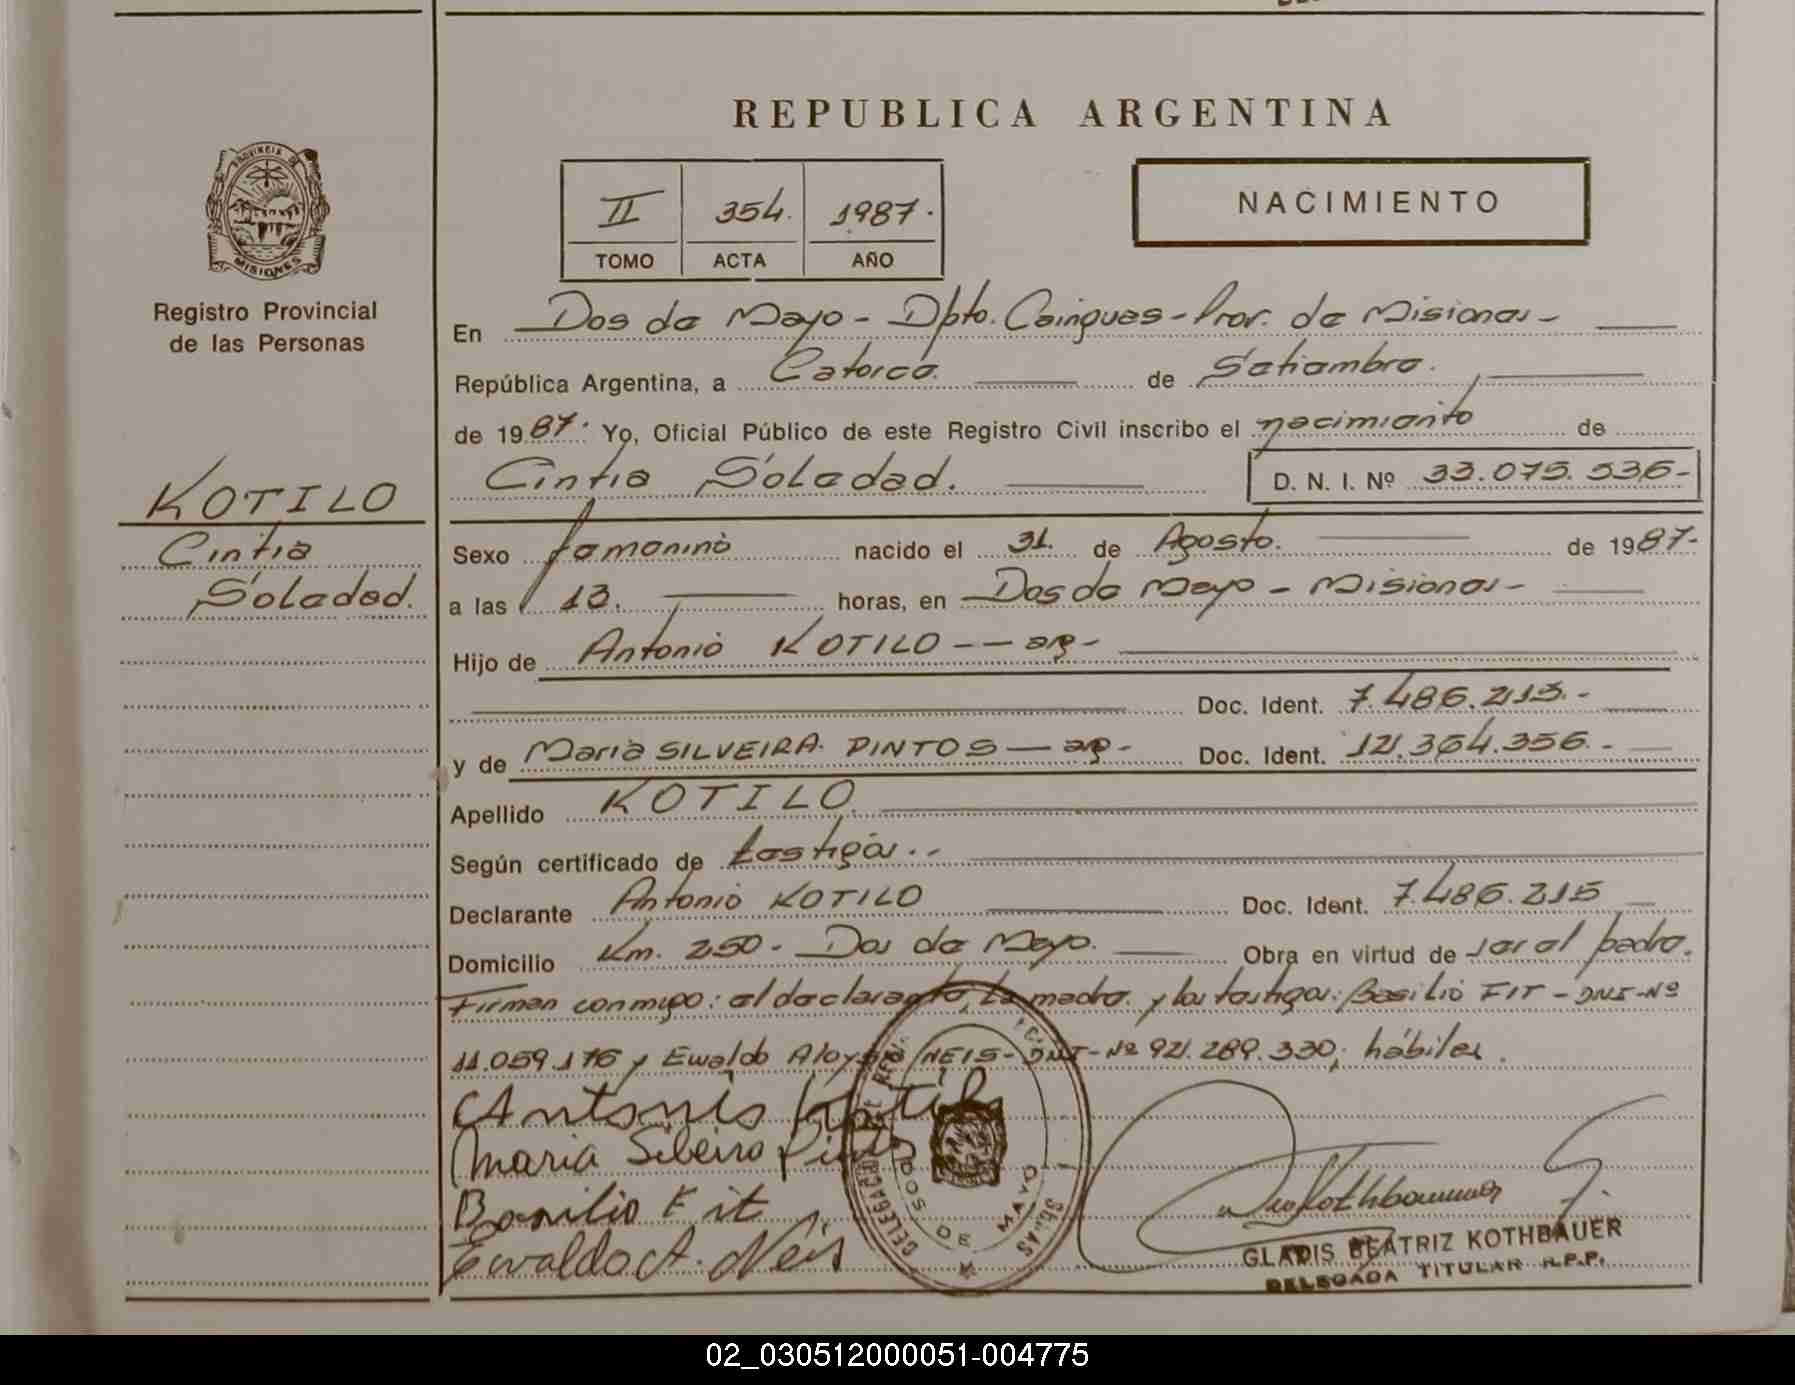 REPUBLICA ARGENTINA
PROVINCIA DE
MISIONES
Registro Provincial
de las Personas
II 354. 1987.
TOMO ACTA AÑO
NACIMIENTO
KOTILO
Cintia
Soledad.
En Dos de Mayo - Dpto. Cainguas - Prov. de Misiones -
República Argentina, a Catorce. de Setiembre.
de 1987. Yo, Oficial Público de este Registro Civil inscribo el nacimiento de
Cintia Soledad. D. N. I. Nº 33.075.536-
Sexo femenino nacido el 31. de Agosto. de 1987-
a las 13. horas, en Dos de Mayo - Misiones -
Hijo de Antonio KOTILO -- arg-
Doc. Ident. 7.486.215.-
y de Maria SILVEIRA PINTOS - arg- Doc. Ident. 12.364.356.-
Apellido KOTILO
Según certificado de testigos.-
Declarante Antonio KOTILO Doc. Ident. 7.486.215
Domicilio Km. 250 - Dos de Mayo. Obra en virtud de ser el padre.
Firman conmigo: el declarante, la madre y los testigos: Basilio FIT - DNI-Nº
11.059.176 y Ewaldo Aloysio NEIS - DNI-Nº 92.289.330; hábiles.
Antonio Kotilo
Maria Silveiro Pintos
Basilio Fit
Ewaldo A. Neis
DOS DE MAYO
Kothbauer G.
GLADIS BEATRIZ KOTHBAUER
DELEGADA TITULAR R.P.P.
02_030512000051-004775